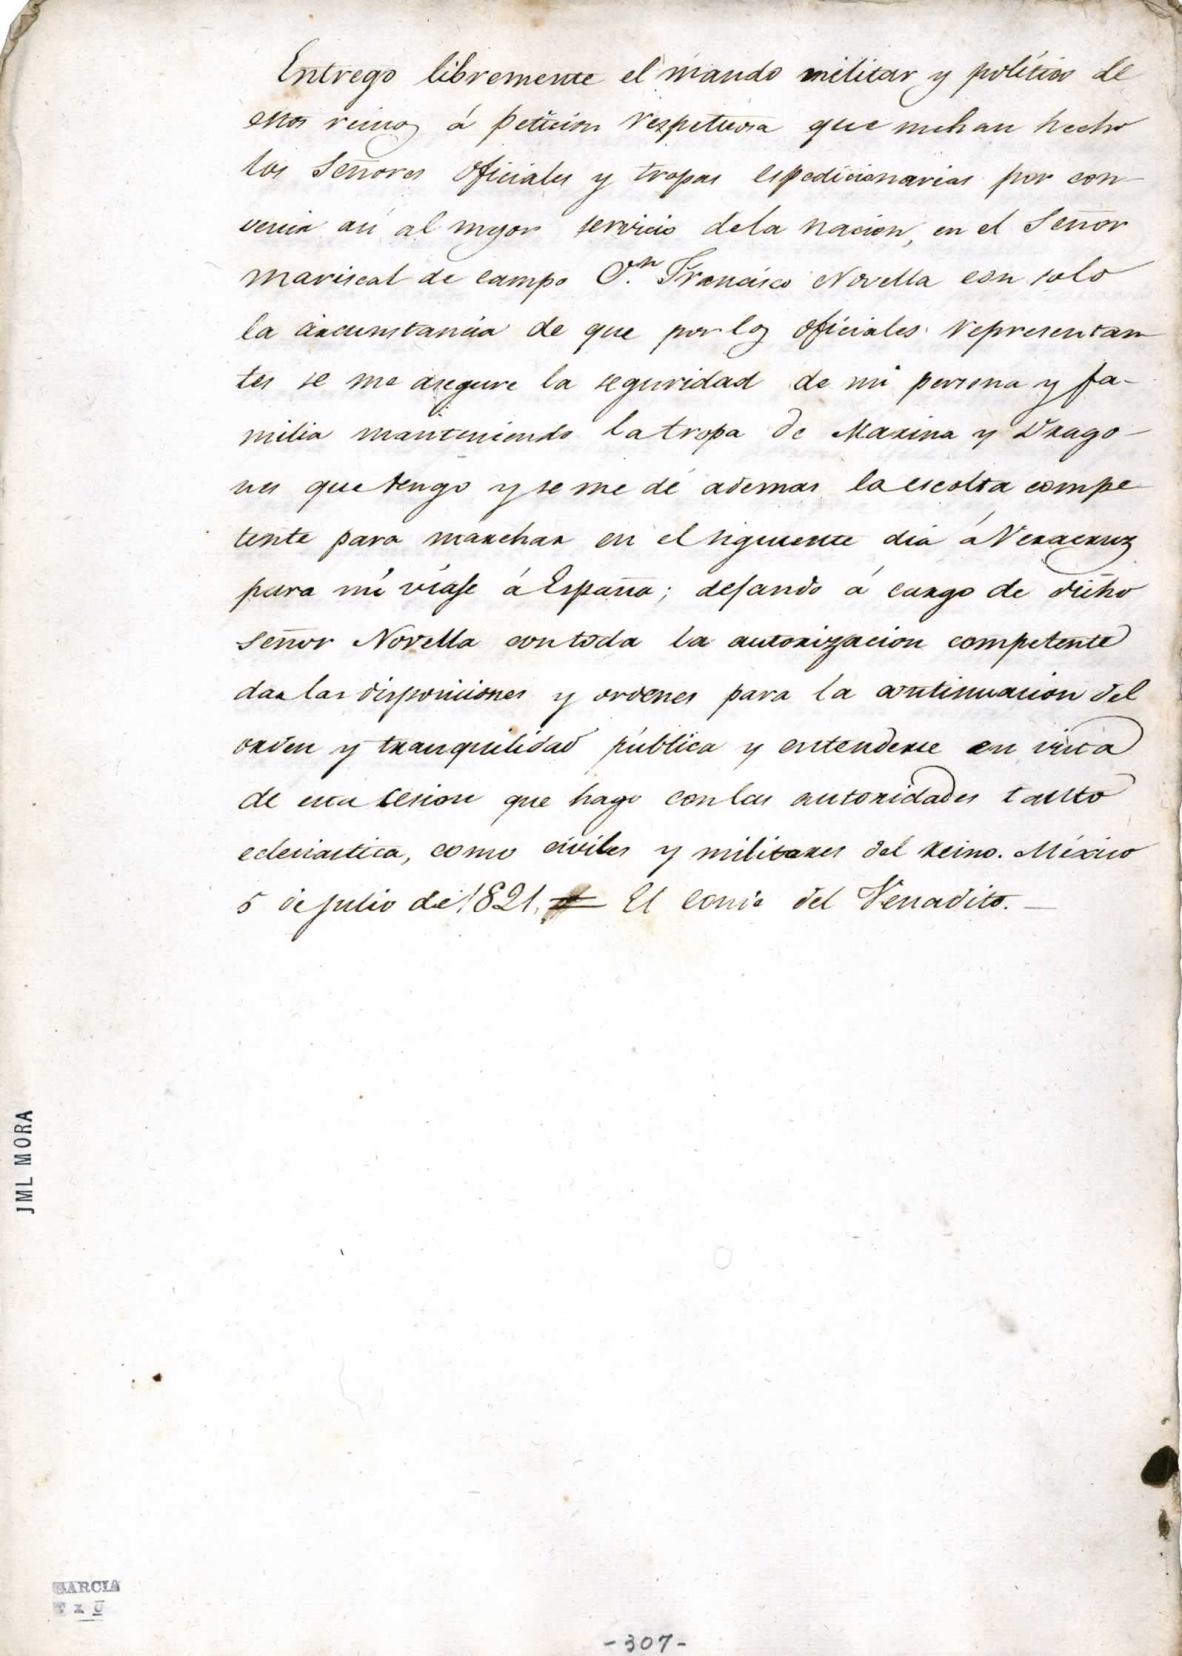 Entrego libremente el mando militar y político de
estos reinos á petición respetuosa que mehan hecho
los Señores oficiales y tropas espedicionarias por con-
venir asi al myor servicio dela nacion, en el Señor
mariscal de campo D.n Francisco Novella con solo
la circunstancia de que por los oficiales representan
tes se me asegure la seguridad de mi persona y fa-
milia manteniendo la tropa de Marina y Drago-
nes que tengo y se me dé ademas la escolta compe
tente para marchar en el siguiente dia á Veracruz
para mi viaje á España; dejando á cargo de dicho
Señor Novella con toda la autorizacion competente
dar las disposiciones y ordenes para la continuacion del
orden y tranquilidad pública y entenderse en vista
de esta cesion que hago con las autoridades tanto
eclesiastica, como civiles y militares del reino. México
5 de julio de 1821. = El Conde del Venadito. —
JML MORA
GARCIA
- 307 -